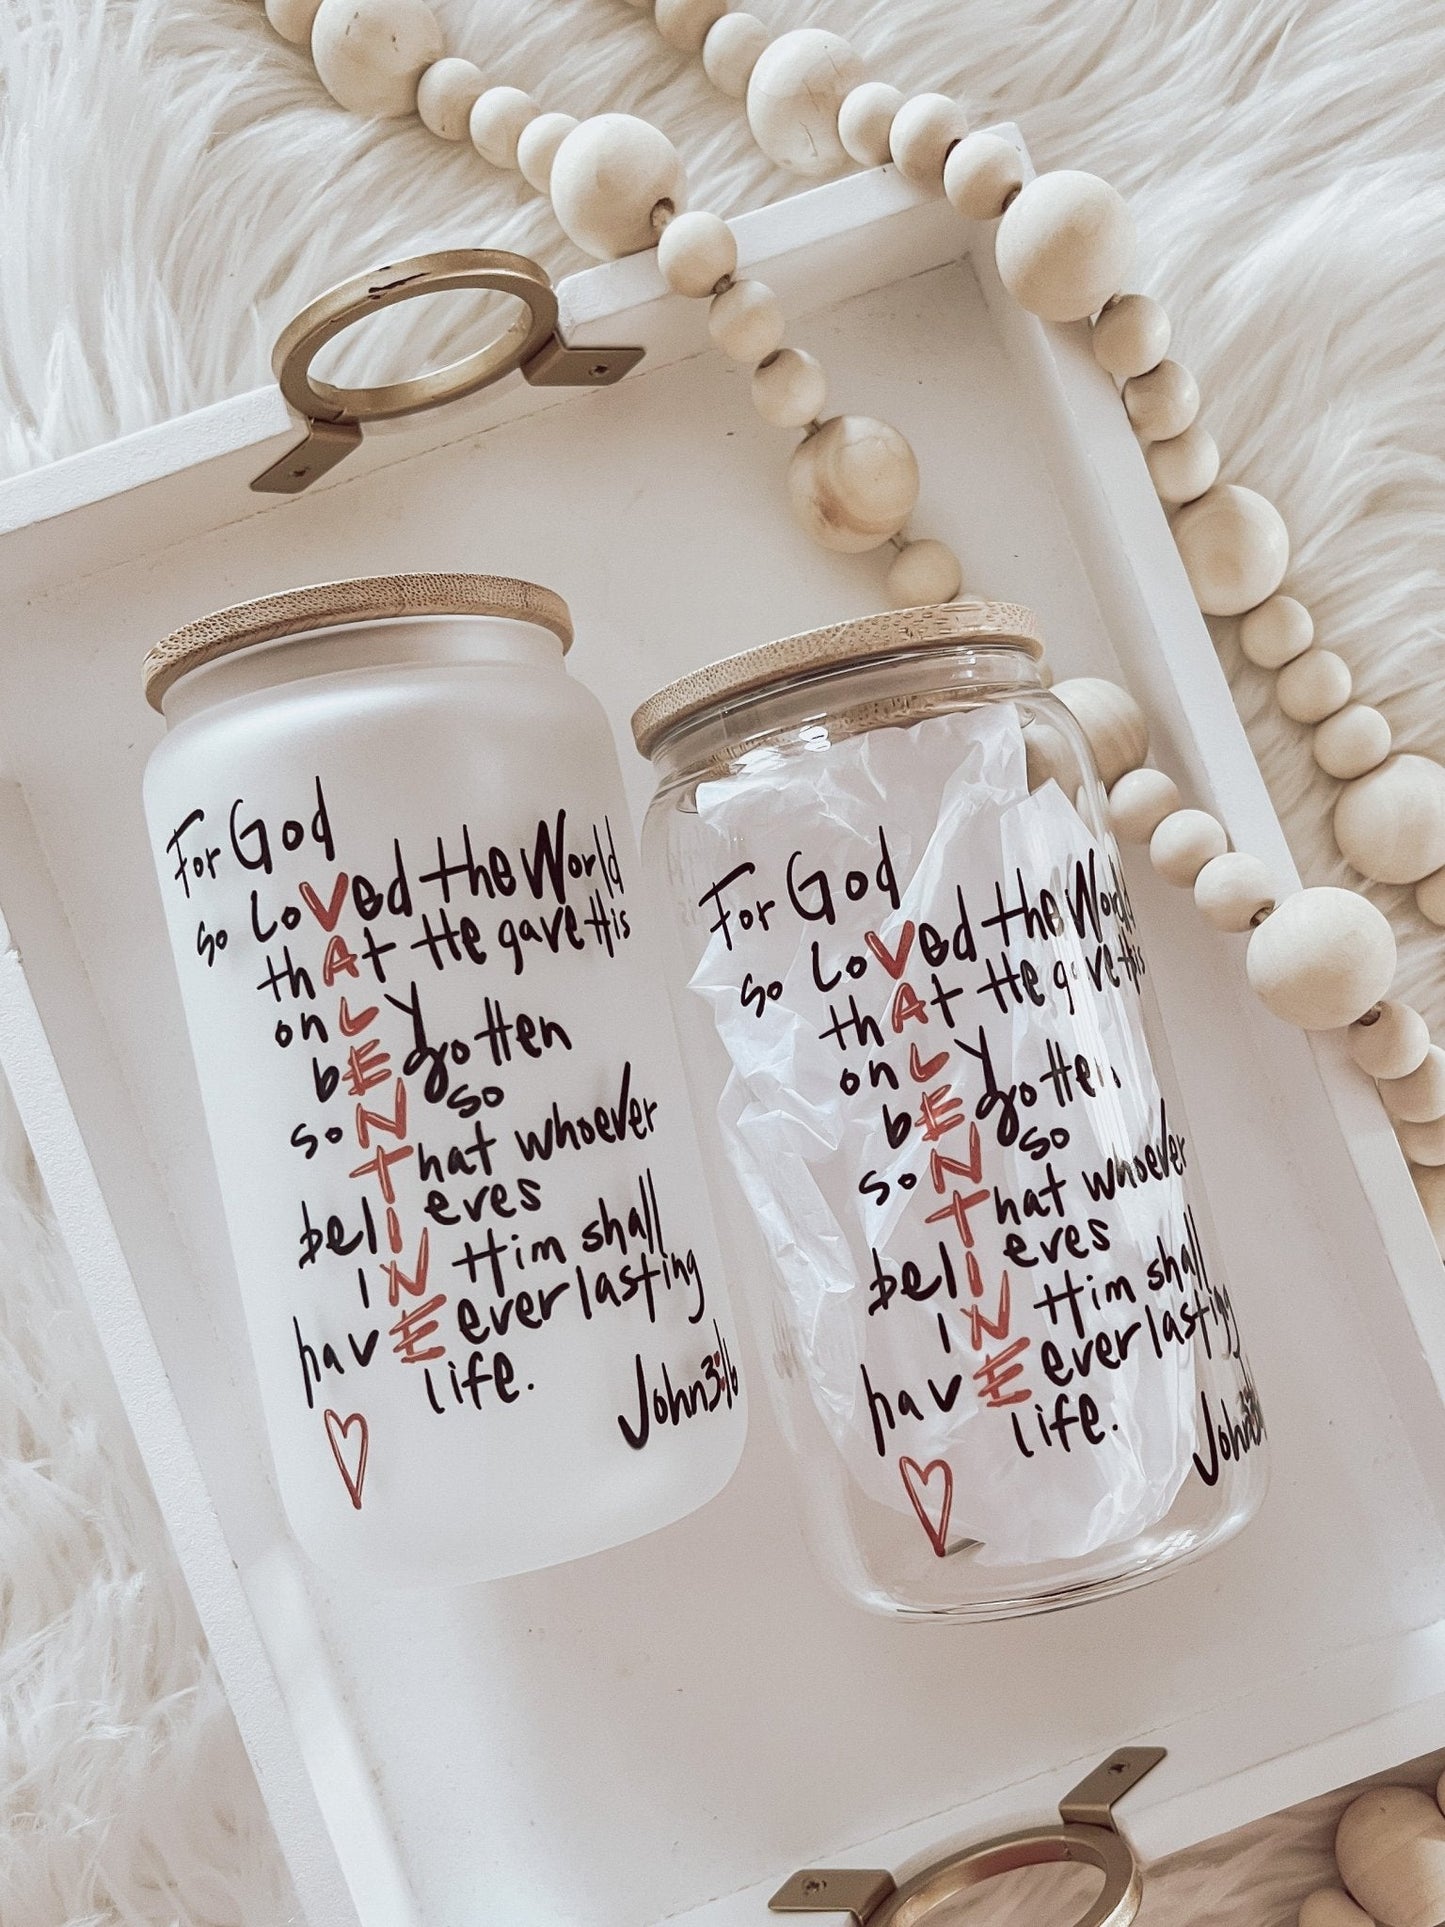 For God
so LoVed the World
thAt He gave His
onLy
bEgotten
soN so
That whoever
belIeves
IN Him shall
havE everlasting
life.
John 3:16
For God
so LoVed the World
thAt He gave His
onLy
bEgotten
soN so
That whoever
belIeves
IN Him shall
havE everlasting
life.
John 3:16